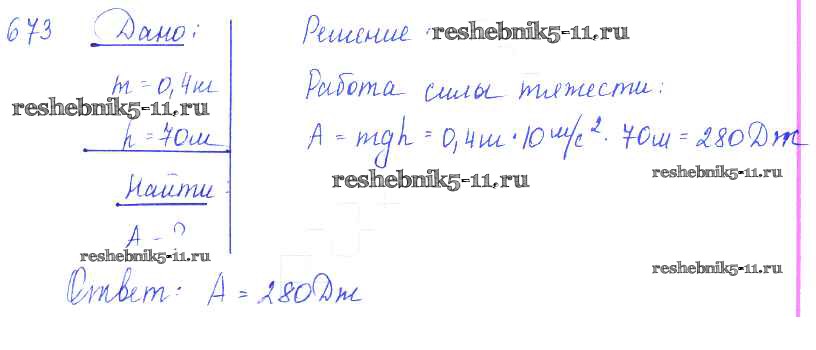 673 Дано:
m = 0,4 кг
reshebnik5-11.ru
h = 70м
Найти:
A - ?
reshebnik5-11.ru
Решение: reshebnik5-11.ru
Работа силы тяжести:
A = mgh = 0,4кг · 10 м/с² · 70м = 280Дж
reshebnik5-11.ru
reshebnik5-11.ru
reshebnik5-11.ru
Ответ: A = 280Дж